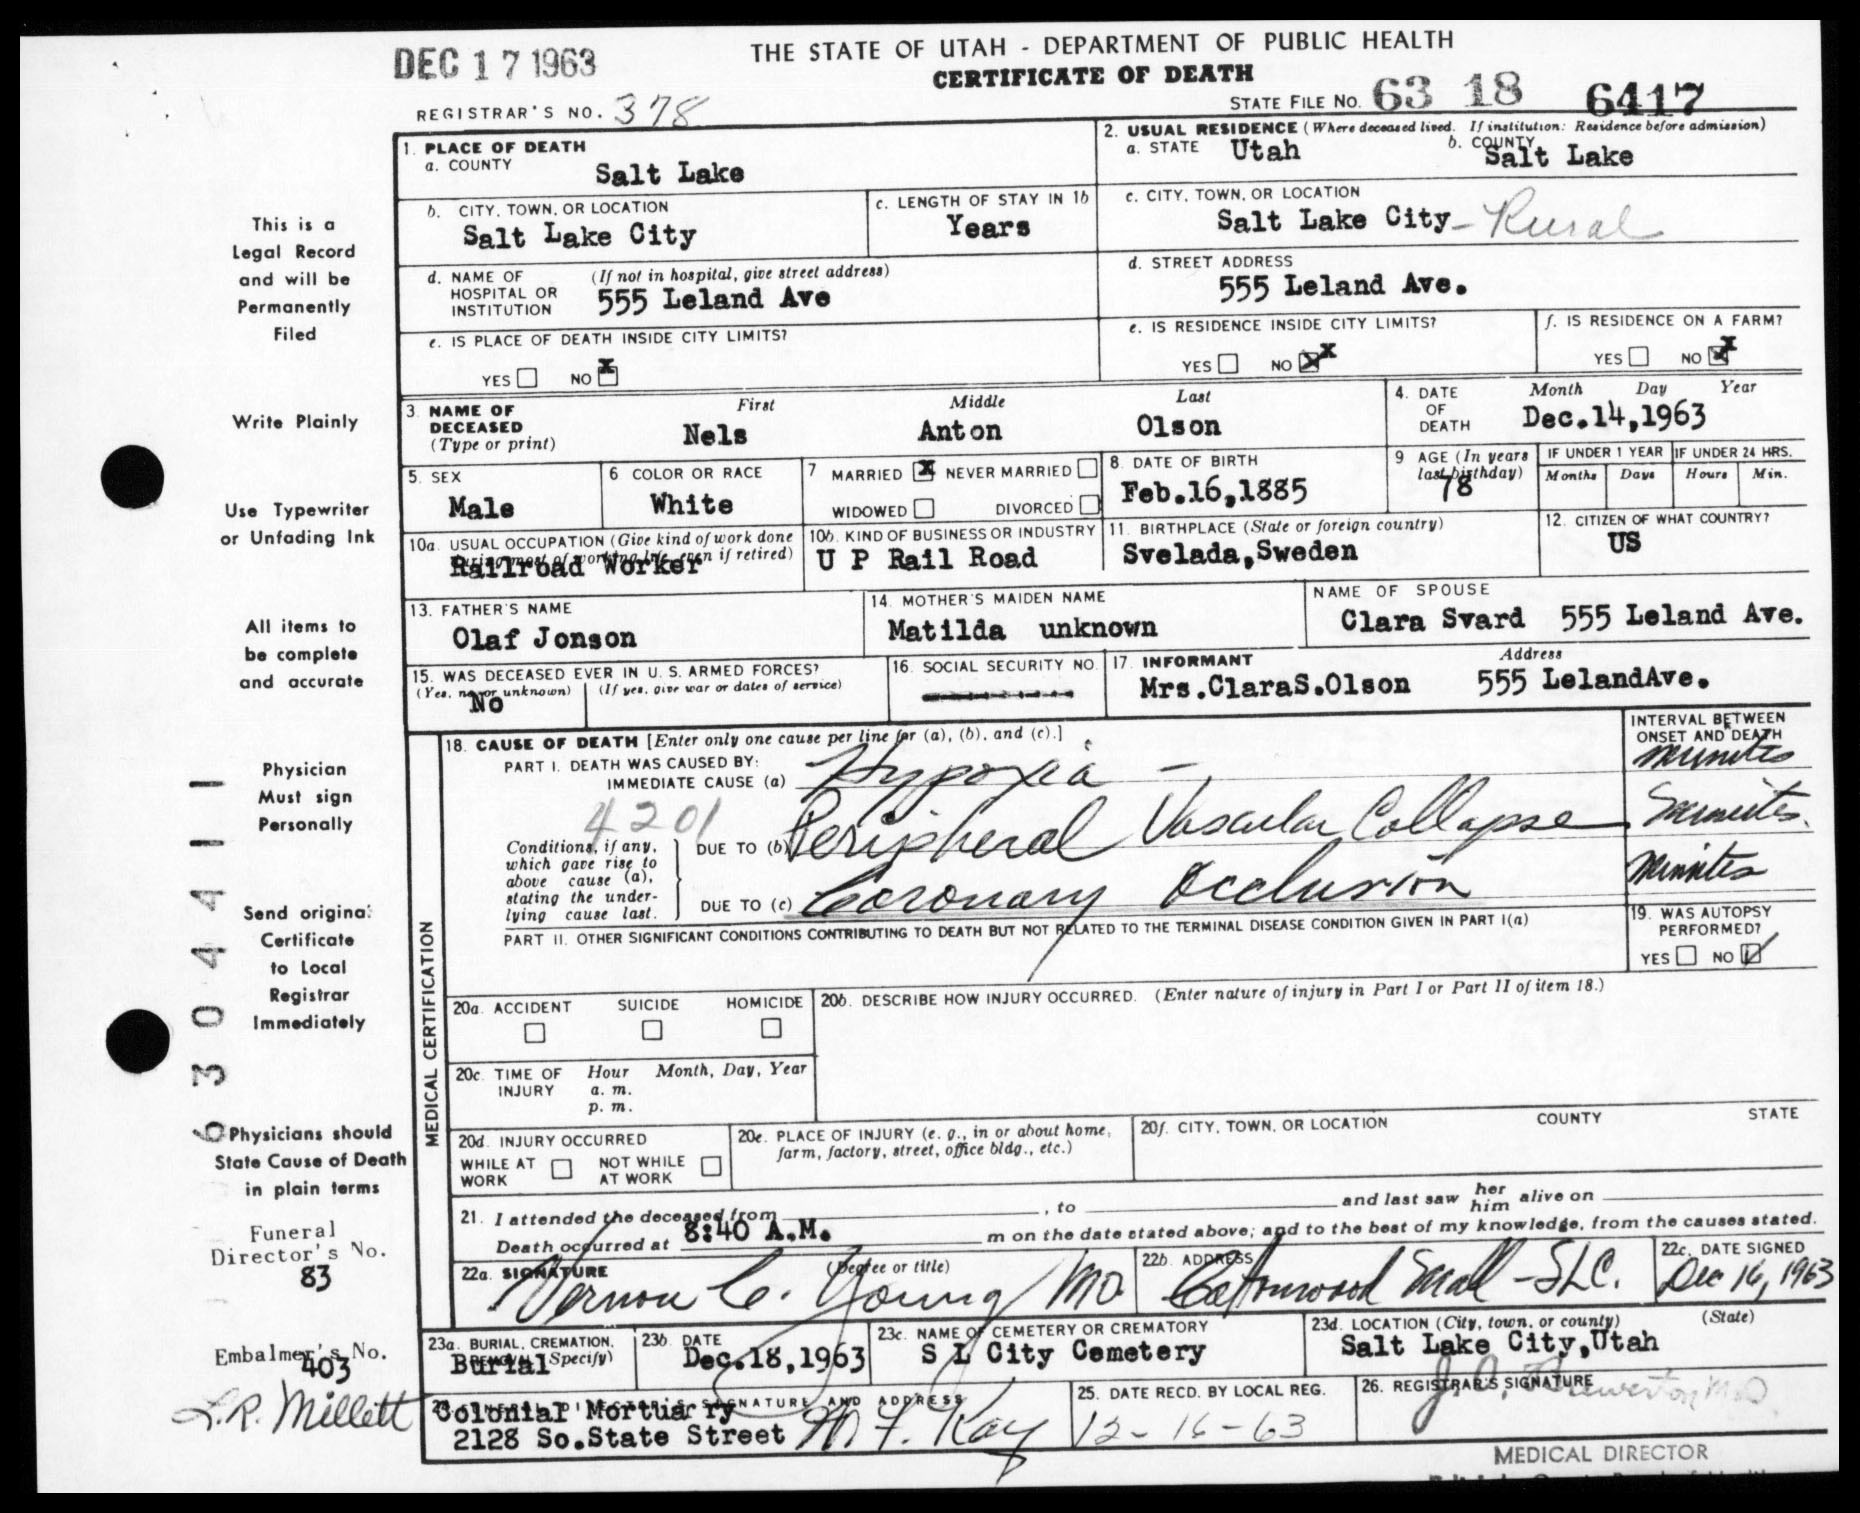 DEC 17 1963
THE STATE OF UTAH - DEPARTMENT OF PUBLIC HEALTH
CERTIFICATE OF DEATH
REGISTRAR'S NO. 378
STATE FILE NO. 63 18 6417
This is a
Legal Record
and will be
Permanently
Filed
Write Plainly
Use Typewriter
or Unfading Ink
All items to
be complete
and accurate
Physician
Must sign
Personally
Send original
Certificate
to Local
Registrar
Immediately
Physicians should
State Cause of Death
in plain terms
Funeral
Director's No.
83
Embalmer's No.
403
L.R. Millett
1. PLACE OF DEATH
a. COUNTY
Salt Lake
2. USUAL RESIDENCE (Where deceased lived. If institution: Residence before admission)
a. STATE Utah
b. COUNTY Salt Lake
b. CITY, TOWN, OR LOCATION
Salt Lake City
c. LENGTH OF STAY IN 1b
Years
c. CITY, TOWN, OR LOCATION
Salt Lake City - Rural
d. NAME OF HOSPITAL OR INSTITUTION (If not in hospital, give street address)
555 Leland Ave
d. STREET ADDRESS
555 Leland Ave.
e. IS PLACE OF DEATH INSIDE CITY LIMITS?
YES NO X
e. IS RESIDENCE INSIDE CITY LIMITS?
YES NO X
f. IS RESIDENCE ON A FARM?
YES NO X
3. NAME OF DECEASED (Type or print)
First Middle Last
Nels Anton Olson
4. DATE OF DEATH
Month Day Year
Dec.14,1963
5. SEX
Male
6 COLOR OR RACE
White
7 MARRIED X NEVER MARRIED
WIDOWED DIVORCED
8. DATE OF BIRTH
Feb.16,1885
9 AGE (In years last birthday)
78
IF UNDER 1 YEAR
Months Days
IF UNDER 24 HRS.
Hours Min.
10a. USUAL OCCUPATION (Give kind of work done during most of working life, even if retired)
Railroad Worker
10b. KIND OF BUSINESS OR INDUSTRY
U P Rail Road
11. BIRTHPLACE (State or foreign country)
Svelada,Sweden
12. CITIZEN OF WHAT COUNTRY?
US
13. FATHER'S NAME
Olaf Jonson
14. MOTHER'S MAIDEN NAME
Matilda unknown
NAME OF SPOUSE
Clara Svard 555 Leland Ave.
15. WAS DECEASED EVER IN U. S. ARMED FORCES?
(Yes, no, or unknown) (If yes, give war or dates of service)
No
16. SOCIAL SECURITY NO.
17. INFORMANT Address
Mrs.ClaraS.Olson 555 LelandAve.
MEDICAL CERTIFICATION
18. CAUSE OF DEATH [Enter only one cause per line for (a), (b), and (c).]
INTERVAL BETWEEN ONSET AND DEATH
PART I. DEATH WAS CAUSED BY:
IMMEDIATE CAUSE (a) Hypoxia - minutes
4201
Conditions, if any, which gave rise to above cause (a), stating the underlying cause last.
DUE TO (b) Peripheral Vascular Collapse minutes.
DUE TO (c) Coronary Occlusion minutes
PART II. OTHER SIGNIFICANT CONDITIONS CONTRIBUTING TO DEATH BUT NOT RELATED TO THE TERMINAL DISEASE CONDITION GIVEN IN PART I(a)
19. WAS AUTOPSY PERFORMED?
YES NO
20a. ACCIDENT SUICIDE HOMICIDE
20b. DESCRIBE HOW INJURY OCCURRED. (Enter nature of injury in Part I or Part II of item 18.)
20c. TIME OF INJURY
Hour Month, Day, Year
a. m.
p. m.
20d. INJURY OCCURRED
WHILE AT WORK NOT WHILE AT WORK
20e. PLACE OF INJURY (e. g., in or about home, farm, factory, street, office bldg., etc.)
20f. CITY, TOWN, OR LOCATION COUNTY STATE
21. I attended the deceased from , to and last saw her him alive on
Death occurred at 8:40 A.M. m on the date stated above; and to the best of my knowledge, from the causes stated.
22a. SIGNATURE (Degree or title)
Vernon C. Young MD.
22b. ADDRESS
Cottonwood Mall - SLC.
22c. DATE SIGNED
Dec 16, 1963
23a. BURIAL, CREMATION, REMOVAL (Specify)
Burial
23b. DATE
Dec.18,1963
23c. NAME OF CEMETERY OR CREMATORY
S L City Cemetery
23d. LOCATION (City, town, or county) (State)
Salt Lake City,Utah
24. FUNERAL DIRECTOR'S SIGNATURE AND ADDRESS
Colonial Mortuarry
2128 So.State Street M F. Kay
25. DATE RECD. BY LOCAL REG.
12-16-63
26. REGISTRAR'S SIGNATURE
MEDICAL DIRECTOR
6304411